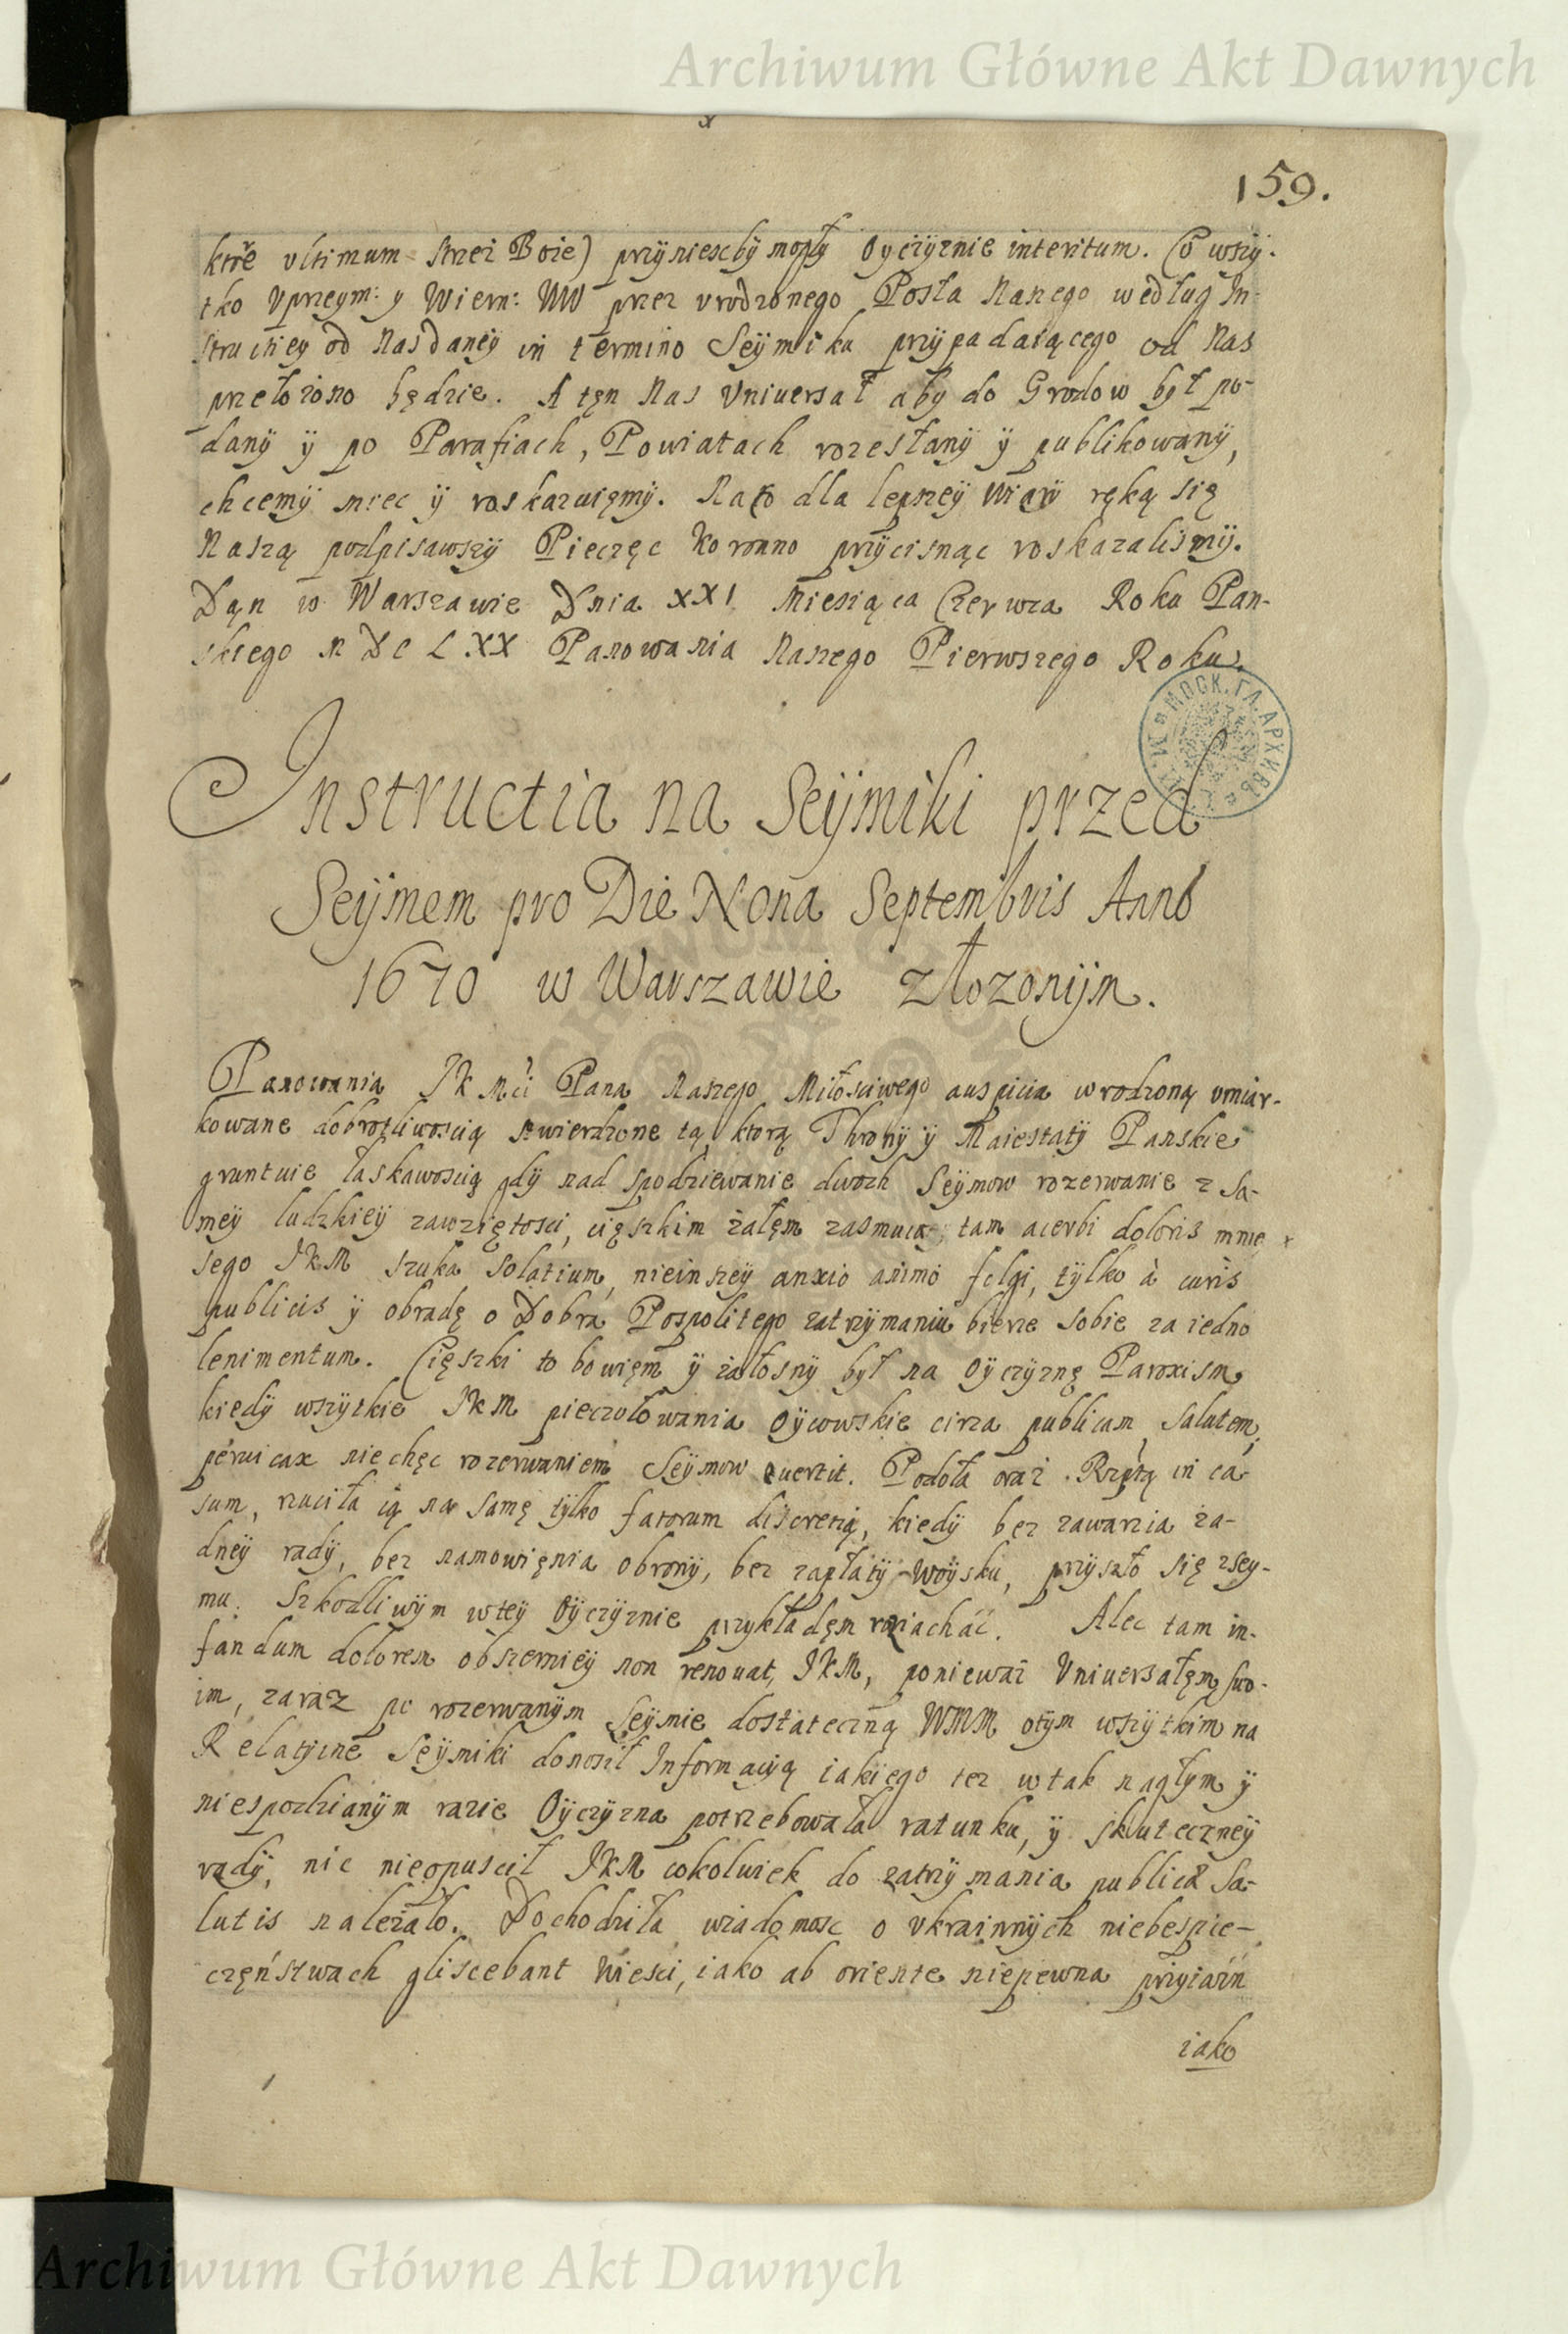 Archiwum Główne Akt Dawnych
159.
ktore vltimum strzez Boze) przÿniescbÿ mogłÿ Oyczÿznie interitum. Co wszÿ-
tko Vprzeym: y Wiern: WW przez vrodzonego Posła Naszego według In-
structiey od Nas daneÿ in termino Seÿmiku przÿpadaiącego od Nas
przełozono będzie. A tęn Nas Vniuersał aby do Grodow był po-
danÿ ÿ po Parafiach, Powiatach rozesłanÿ ÿ publikowanÿ,
chcemÿ miec ÿ roskazuięmÿ. Na co dla lepszeÿ wiarÿ ręką się
Naszą podpisawszÿ Pieczęc Koronno przÿcisnąc roskazalismÿ.
Dąn w Warszawie Dnia XXI Miesiąca Czerwca Roku Pan-
skiego M DC LXX Panowania Naszego Pierwszego Roku.
Instructia na Seÿmiki przed
Seÿmem pro Die Nona Septembris Anno
1670 w Warszawie złozonÿm.
Panowania JKMci Pana Naszego Miłosciwego auspicia wrodzoną vmiar-
kowane dobrotliwoscią stwierdzone tą, ktorą Thronÿ ÿ Maiestatÿ Panskie
gruntuie łaskawoscią gdÿ nad spodziewanie dwoch Seÿmow rozerwanie z sa-
meÿ ludzkieÿ zawziętosci, cięszkim zalęm zasmuca, tam acerbi doloris
sego JKM szuka solatium, nieinszeÿ anxio animo folgi, tÿlko à curis
publicis ÿ obradę o Dobra Pospolitego zatrzÿmaniu bierze sobie za iedno
lenimentum. Cięszki to bowięm ÿ załosnÿ był na Oÿczÿznę Paroxism,
kiedÿ wszÿtkie JKM pieczołowania Oÿcowskie circa publicam salutem,
peruicax niechęc rozerwaniem Seÿmow euertit. Podała oraz Rzptą in ca-
sum, rzuciła ią na samę tÿlko fatorum discretią, kiedÿ bez zawarzia za-
dneÿ radÿ, bez namowięnia obronÿ, bez zapłatÿ Woÿsku, przÿszło się zsey-
mu. Szkodliwÿm wteÿ Oÿczÿznie przykładęm roziachać. Alec tam in-
fandum dolorem obszernieÿ non renouat, JKM, poniewaz Vniuersałęm swo-
im, zaraz po rozerwanÿm Seÿmie dostateczną WMM otÿm wszÿtkim na
Relatÿine Seÿmiki donosił Informacÿą iakiego tez wtak nagłÿm ÿ
niespodzianÿm razie Oÿczÿzna potrzebowała ratunku, ÿ skuteczneÿ
radÿ, nic nieopuscił JKM cokolwiek do zatrzÿmania publicæ sa-
lutis nalezało. Dochodziła wiadomosc o vkrainnÿch niebespie-
częństwach gliscebant wiesci, iako ab oriente niepewna przÿiaźn
iako
Archiwum Główne Akt Dawnych